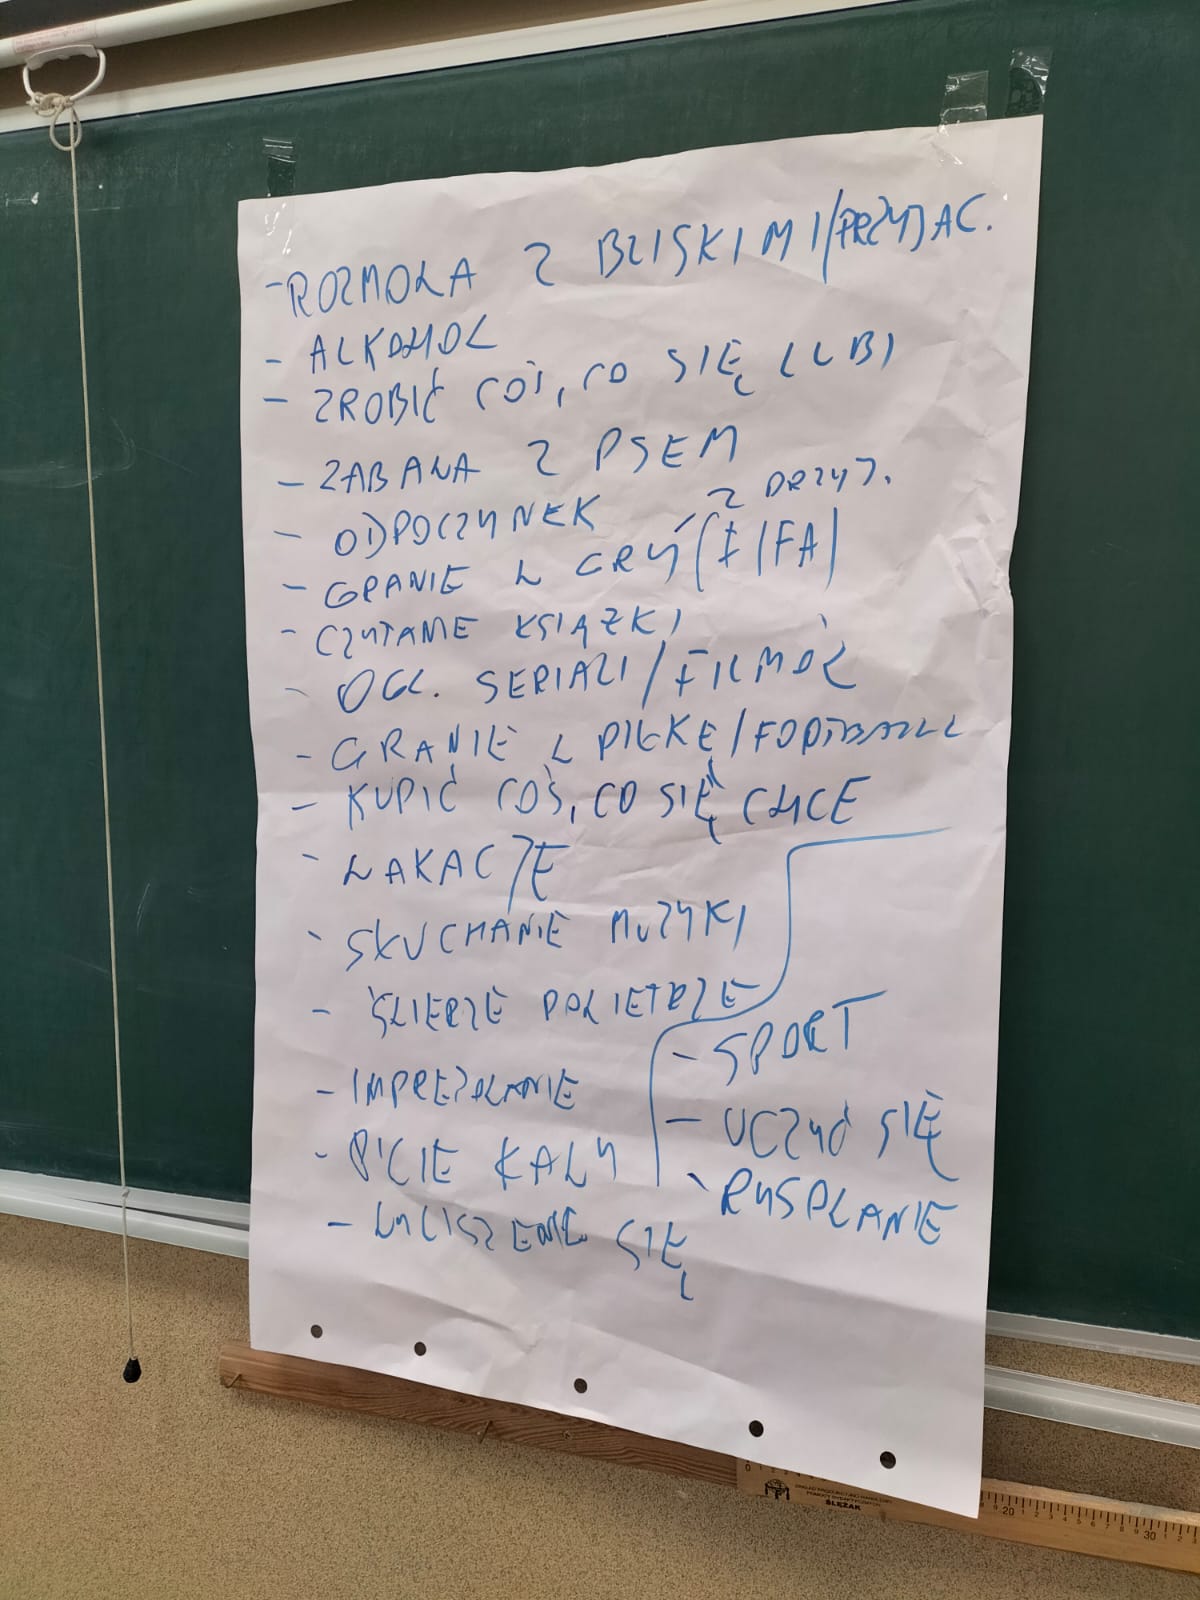 - ROZMOWA Z BLISKIMI/PRZYJAC.
- ALKOHOL
- ZROBIĆ COŚ, CO SIĘ LUBI
- ZABAWA Z PSEM
- ODPOCZYNEK
- GRANIE W GRY (FIFA) Z PRZYJ.
- CZYTANIE KSIĄŻKI
- OGL. SERIALI/FILMÓW
- GRANIE W PIŁKĘ/FOOTBALL
- KUPIĆ COŚ, CO SIĘ CHCE
- WAKACJE
- SŁUCHANIE MUZYKI
- ŚWIEŻE POWIETRZE
- IMPREZOWANIE
- PICIE KAWY
- WYCISZENIE SIĘ
- SPORT
- UCZYĆ SIĘ
- RYSOWANIE
ŚLĘŻAK
20
30